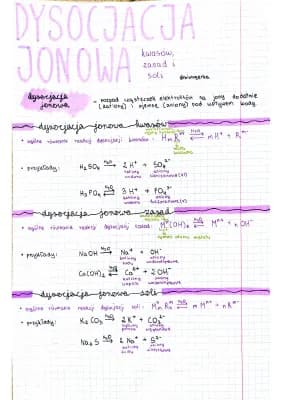 DYSOCJACJA
JONOWA kwasów,
zasad i
soli
dysocjacja jonowa - rozpad cząsteczek elektrolitów na jony dodatnie
(kationy) i ujemne (aniony) pod wpływem wody.
dysocjacja jonowa kwasów
• ogólne równanie reakcji dysocjacji kwasów: HmR ⇄ m H⁺ + Rᵐ⁻
• przykłady: H₂SO₄ ⇄ 2 H⁺ + SO₄²⁻
kationy wodoru aniony
H₃PO₄ ⇄ 3 H⁺ + PO₄³⁻
kationy wodoru aniony
dysocjacja jonowa zasad
• ogólne równanie reakcji dysocjacji zasad: M(OH)ₙ → Mⁿ⁺ + n OH⁻
• przykłady: NaOH →H₂O Na⁺ + OH⁻
kationy sodu aniony
Ca(OH)₂ →H₂O Ca²⁺ + 2 OH⁻
kationy aniony
dysocjacja jonowa soli
• ogólne równanie reakcji dysocjacji soli: MmRn →H₂O m Mⁿ⁺ + n Rᵐ⁻
• przykłady: K₂CO₃ →H₂O 2 K⁺ + CO₃²⁻
kationy aniony
Na₂S →H₂O 2 Na⁺ + S²⁻
kationy sodu aniony